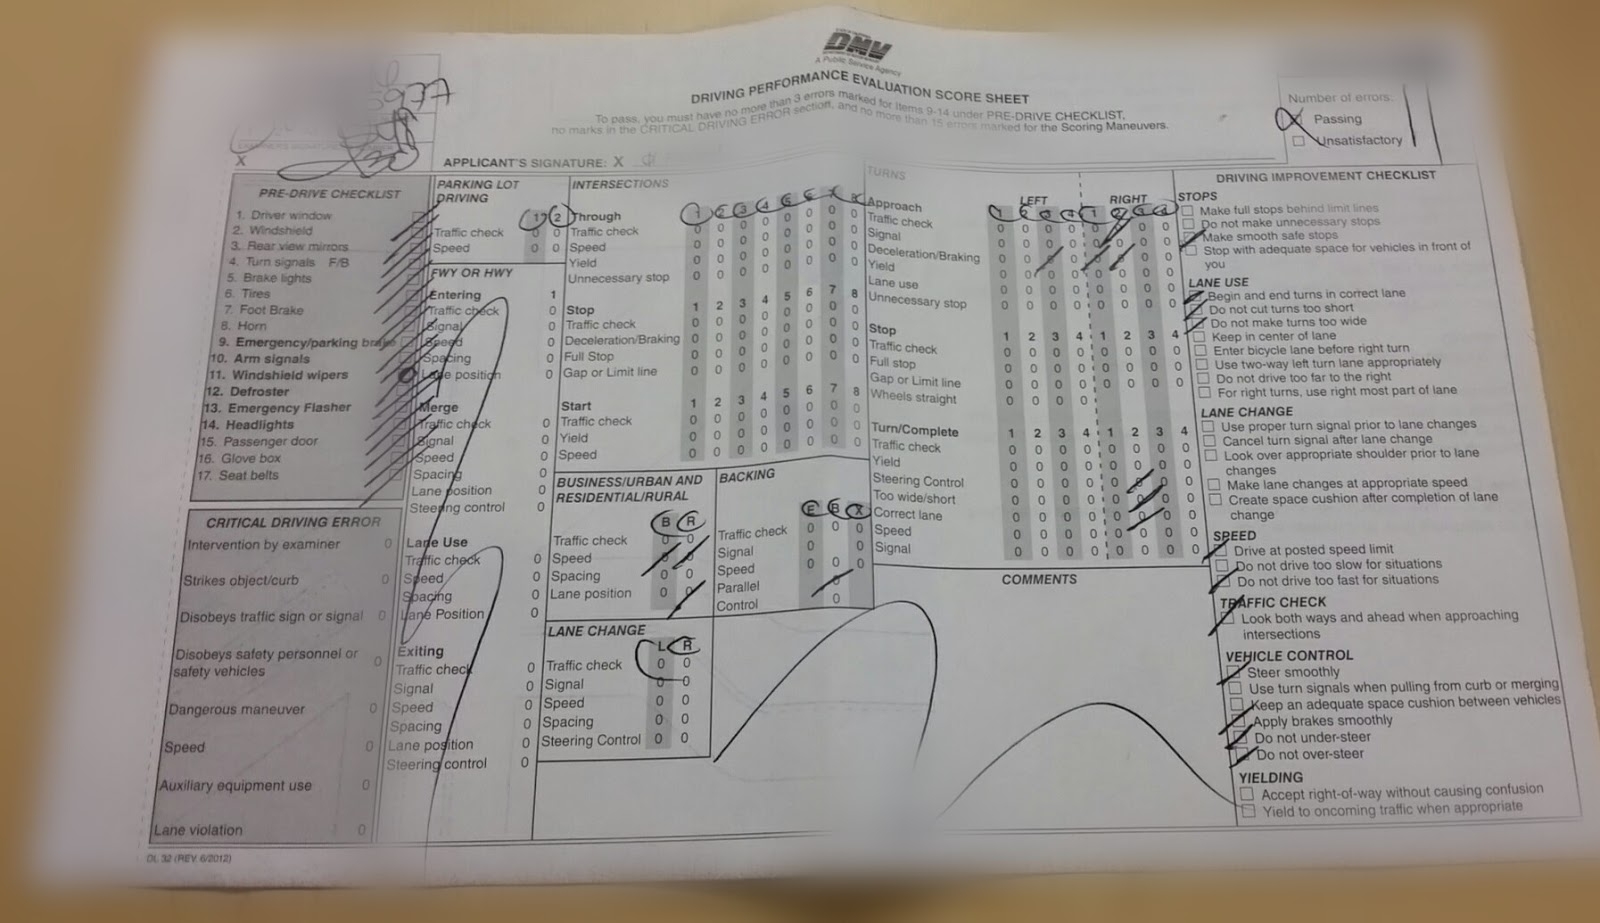 DMV
A Public Service Agency
DRIVING PERFORMANCE EVALUATION SCORE SHEET
To pass, you must have no more than 3 errors marked for Items 9-14 under PRE-DRIVE CHECKLIST,
no marks in the CRITICAL DRIVING ERROR section, and no more than 15 errors marked for the Scoring Maneuvers.
Number of errors:
Passing
Unsatisfactory
X
APPLICANT'S SIGNATURE: X
PRE-DRIVE CHECKLIST
1. Driver window
2. Windshield
3. Rear view mirrors
4. Turn signals F/B
5. Brake lights
6. Tires
7. Foot Brake
8. Horn
9. Emergency/parking brake
10. Arm signals
11. Windshield wipers
12. Defroster
13. Emergency Flasher
14. Headlights
15. Passenger door
16. Glove box
17. Seat belts
CRITICAL DRIVING ERROR
Intervention by examiner 0
Strikes object/curb 0
Disobeys traffic sign or signal 0
Disobeys safety personnel or
safety vehicles 0
Dangerous maneuver 0
Speed 0
Auxiliary equipment use 0
Lane violation 0
DL 32 (REV. 6/2012)
PARKING LOT
DRIVING 1 2
Traffic check 0 0
Speed 0 0
FWY OR HWY
Entering 1
Traffic check 0
Signal 0
Speed 0
Spacing 0
Lane position 0
Merge
Traffic check 0
Signal 0
Speed 0
Spacing 0
Lane position 0
Steering control 0
Lane Use
Traffic check 0
Speed 0
Spacing 0
Lane Position 0
Exiting
Traffic check 0
Signal 0
Speed 0
Spacing 0
Lane position 0
Steering control 0
INTERSECTIONS
Through
Traffic check 0 0 0 0 0 0 0 0
Speed 0 0 0 0 0 0 0 0
Yield 0 0 0 0 0 0 0 0
Unnecessary stop 0 0 0 0 0 0 0 0
Stop 1 2 3 4 5 6 7 8
Traffic check 0 0 0 0 0 0 0 0
Deceleration/Braking 0 0 0 0 0 0 0 0
Full Stop 0 0 0 0 0 0 0 0
Gap or Limit line 0 0 0 0 0 0 0 0
Start 1 2 3 4 5 6 7 8
Traffic check 0 0 0 0 0 0 0 0
Yield 0 0 0 0 0 0 0 0
Speed 0 0 0 0 0 0 0 0
BUSINESS/URBAN AND
RESIDENTIAL/RURAL
B R
Traffic check 0 0
Speed 0 0
Spacing 0 0
Lane position 0 0
LANE CHANGE
L R
Traffic check 0 0
Signal 0 0
Speed 0 0
Spacing 0 0
Steering Control 0 0
BACKING
Traffic check 0 0 0
Signal 0 0
Speed 0 0 0
Parallel 0
Control 0
TURNS
LEFT RIGHT
Approach
Traffic check 0 0 0 0 0 0 0 0
Signal 0 0 0 0 0 0 0 0
Deceleration/Braking 0 0 0 0 0 0 0 0
Yield 0 0 0 0 0 0 0 0
Lane use 0 0 0 0 0 0 0 0
Unnecessary stop 0 0 0 0 0 0 0 0
Stop 1 2 3 4 1 2 3 4
Traffic check 0 0 0 0 0 0 0 0
Full stop 0 0 0 0 0 0 0 0
Gap or Limit line 0 0 0 0 0 0 0 0
Wheels straight 0 0 0 0
Turn/Complete 1 2 3 4 1 2 3 4
Traffic check 0 0 0 0 0 0 0 0
Yield 0 0 0 0 0 0 0 0
Steering Control 0 0 0 0 0 0 0 0
Too wide/short 0 0 0 0 0 0 0 0
Correct lane 0 0 0 0 0 0 0 0
Speed 0 0 0 0 0 0 0 0
Signal 0 0 0 0 0 0 0 0
COMMENTS
DRIVING IMPROVEMENT CHECKLIST
STOPS
Make full stops behind limit lines
Do not make unnecessary stops
Make smooth safe stops
Stop with adequate space for vehicles in front of
you
LANE USE
Begin and end turns in correct lane
Do not cut turns too short
Do not make turns too wide
Keep in center of lane
Enter bicycle lane before right turn
Use two-way left turn lane appropriately
Do not drive too far to the right
For right turns, use right most part of lane
LANE CHANGE
Use proper turn signal prior to lane changes
Cancel turn signal after lane change
Look over appropriate shoulder prior to lane
changes
Make lane changes at appropriate speed
Create space cushion after completion of lane
change
SPEED
Drive at posted speed limit
Do not drive too slow for situations
Do not drive too fast for situations
TRAFFIC CHECK
Look both ways and ahead when approaching
intersections
VEHICLE CONTROL
Steer smoothly
Use turn signals when pulling from curb or merging
Keep an adequate space cushion between vehicles
Apply brakes smoothly
Do not under-steer
Do not over-steer
YIELDING
Accept right-of-way without causing confusion
Yield to oncoming traffic when appropriate